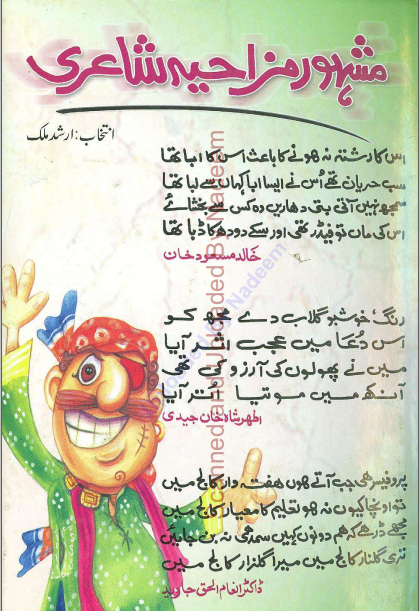 مشہور مزاحیہ شاعری
انتخاب: ارشد ملک
اس کا رشتہ نہ ہونے کا باعث اس کا ابا تھا
سب حیران تھے اُس نے ایسا ابا کہاں سے لبا تھا
سمجھ نہیں آتی بتی دھاریں وہ کس سے بخشائے
اس کی ماں تو فیڈر تھی اور سکے دودھ کا ڈبا تھا
خالد مسعود خان
رنگ خوشبو گلاب دے مجھ کو
اس دُعا میں عجب اثر آیا
میں نے پھولوں کی آرزو کی تھی
آنکھ میں موتیا اُتر آیا
اطہر شاہ خان جیدی
پروفیسر ہی جب آتے ہوں ہفتہ وار کالج میں
تو اونچا کیوں نہ ہو تعلیم کا معیار کالج میں
مجھے ڈر ہے کہ ہم دونوں کہیں سمدھی نہ بن جائیں
تری گلنار کالج میں میرا گلزار کالج میں
ڈاکٹر انعام الحق جاوید
Scanned and Uploaded By Nadeem